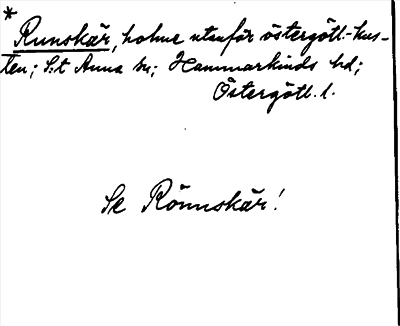 * Runskär, holme utanför östergötl.-kus-
ten; S:t Anna sn; Hammarkinds hd;
Östergötl. l.
Se Rönnskär!